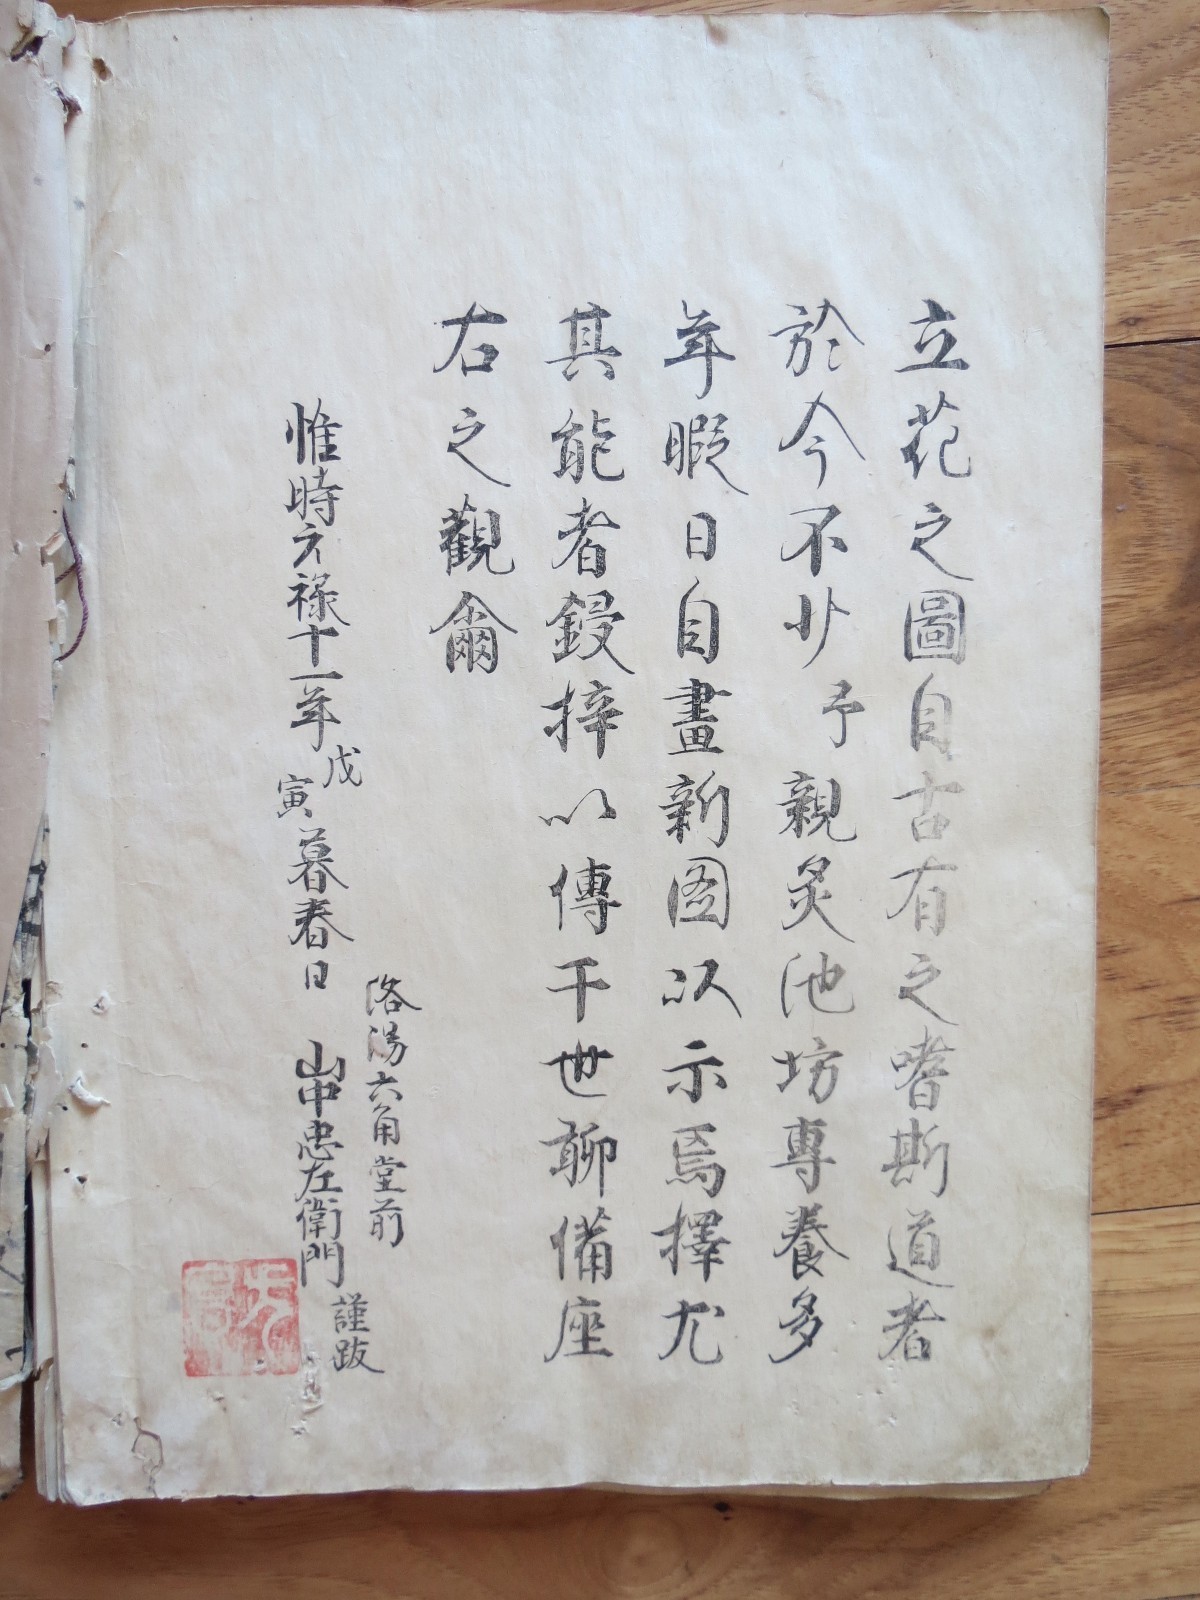 立花之圖自古有之嗜斯道者
於今不少予親炙池坊專養多
年暇日自畫新図以示焉擇尤
其能者鋟梓以傳于世聊備座
右之觀爾
惟時元祿十一年戊寅暮春日
洛陽六角堂前
山中忠左衛門謹跋